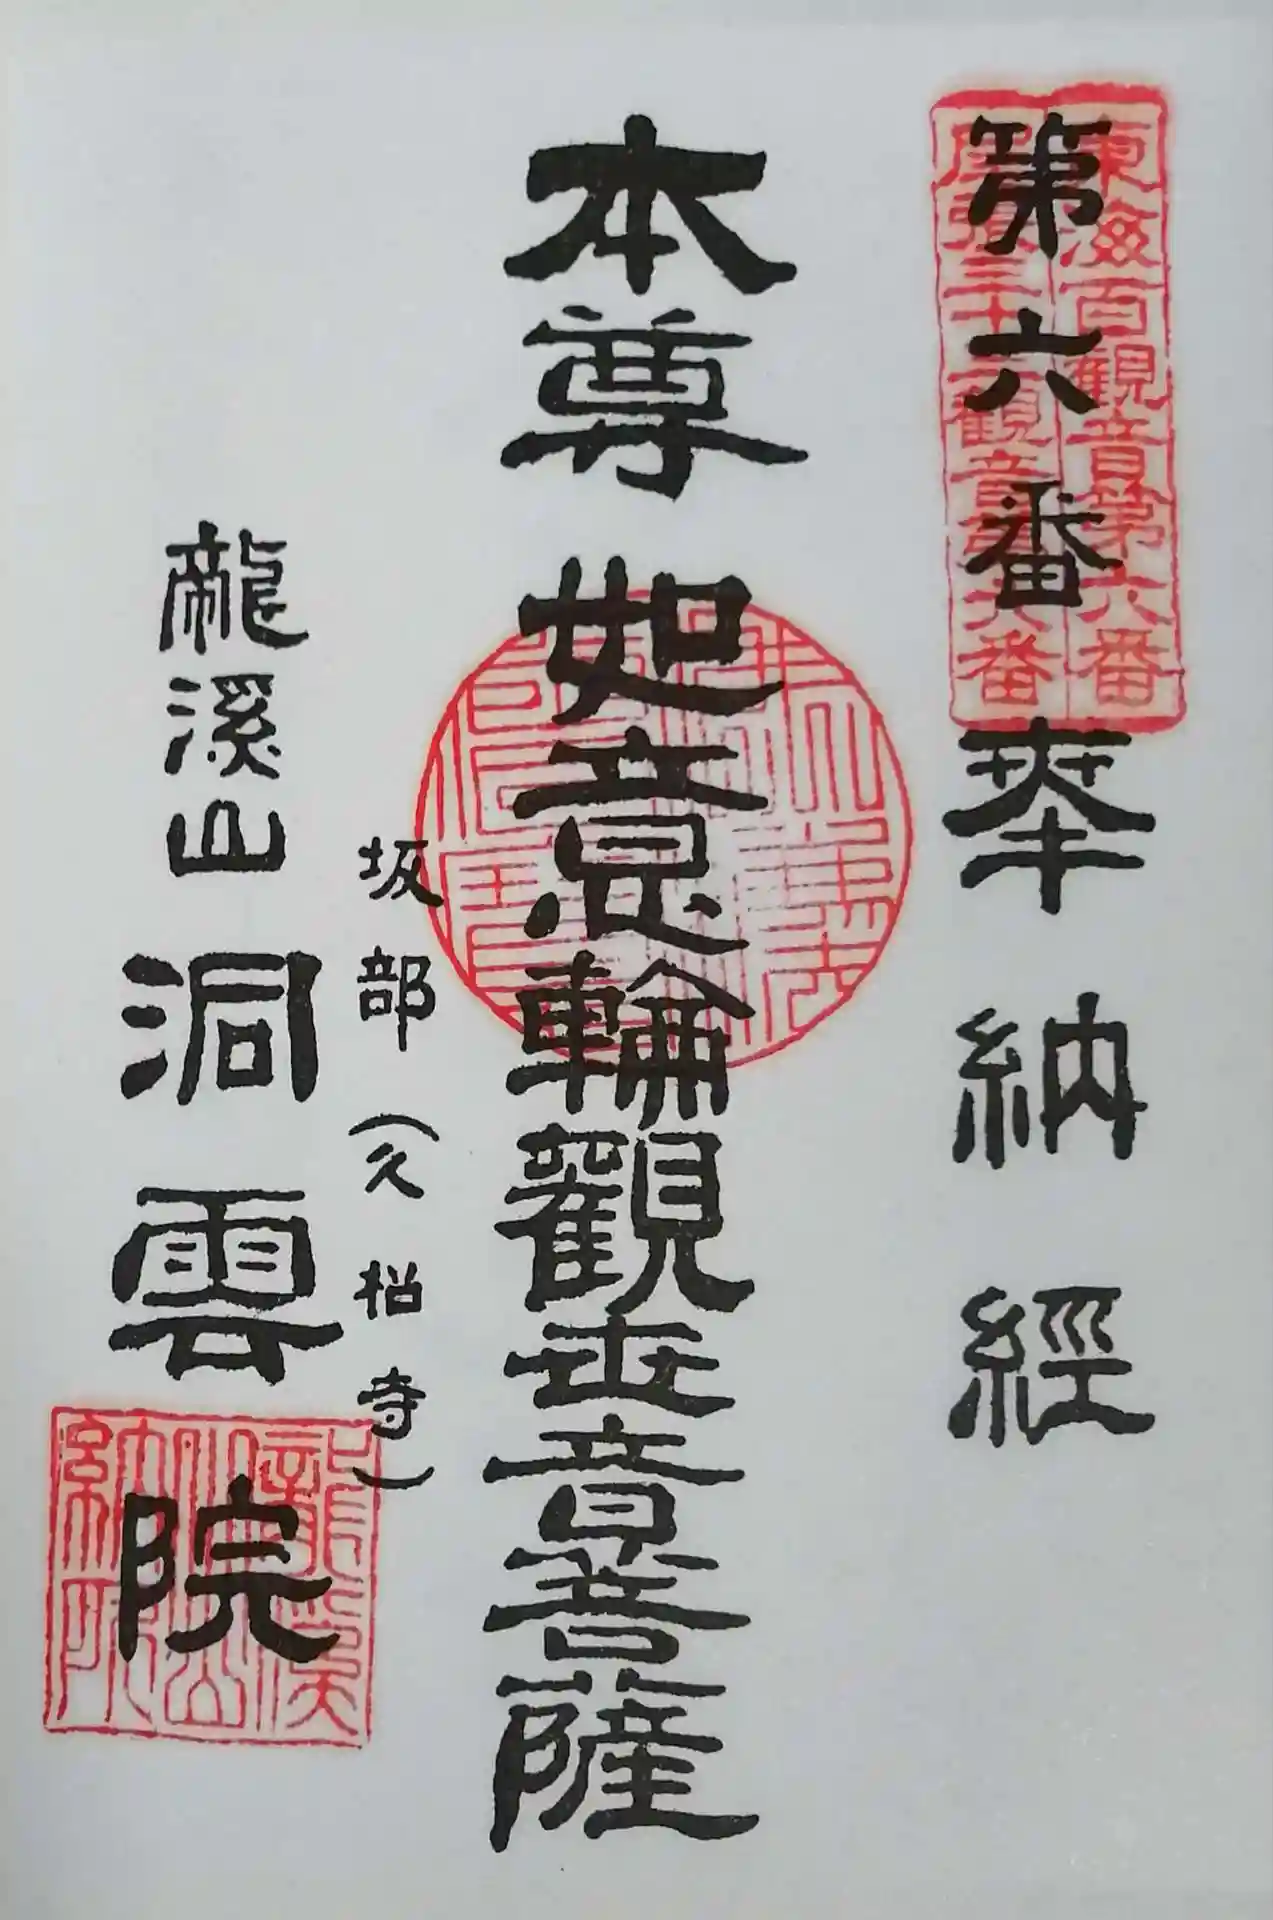 第六番 奉納經
東海百觀音第六番
尾張三十三觀音第六番
本尊 如意輪觀世音菩薩
坂部（久松寺）
龍溪山 洞雲院